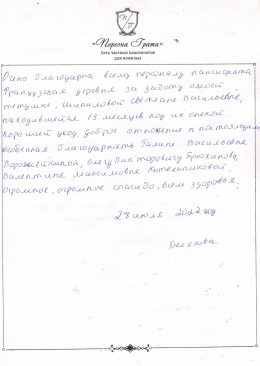 «Персона Грата»
Сеть частных пансионатов
для пожилых
Очно благодарна всему персоналу пансионата
Французская деревня за заботу о моей
тетушке, Шепиловой Светлане Васильевне,
находившейся 13 месяцев под их опекой.
Хороший уход, доброе отношение к постояльцам.
Особенная благодарность Галине Васильевне
Олегу Викторовичу
Валентине Максимовне
Огромное, огромное спасибо, всем здоровья.
28 июля 2022 год
Белякова